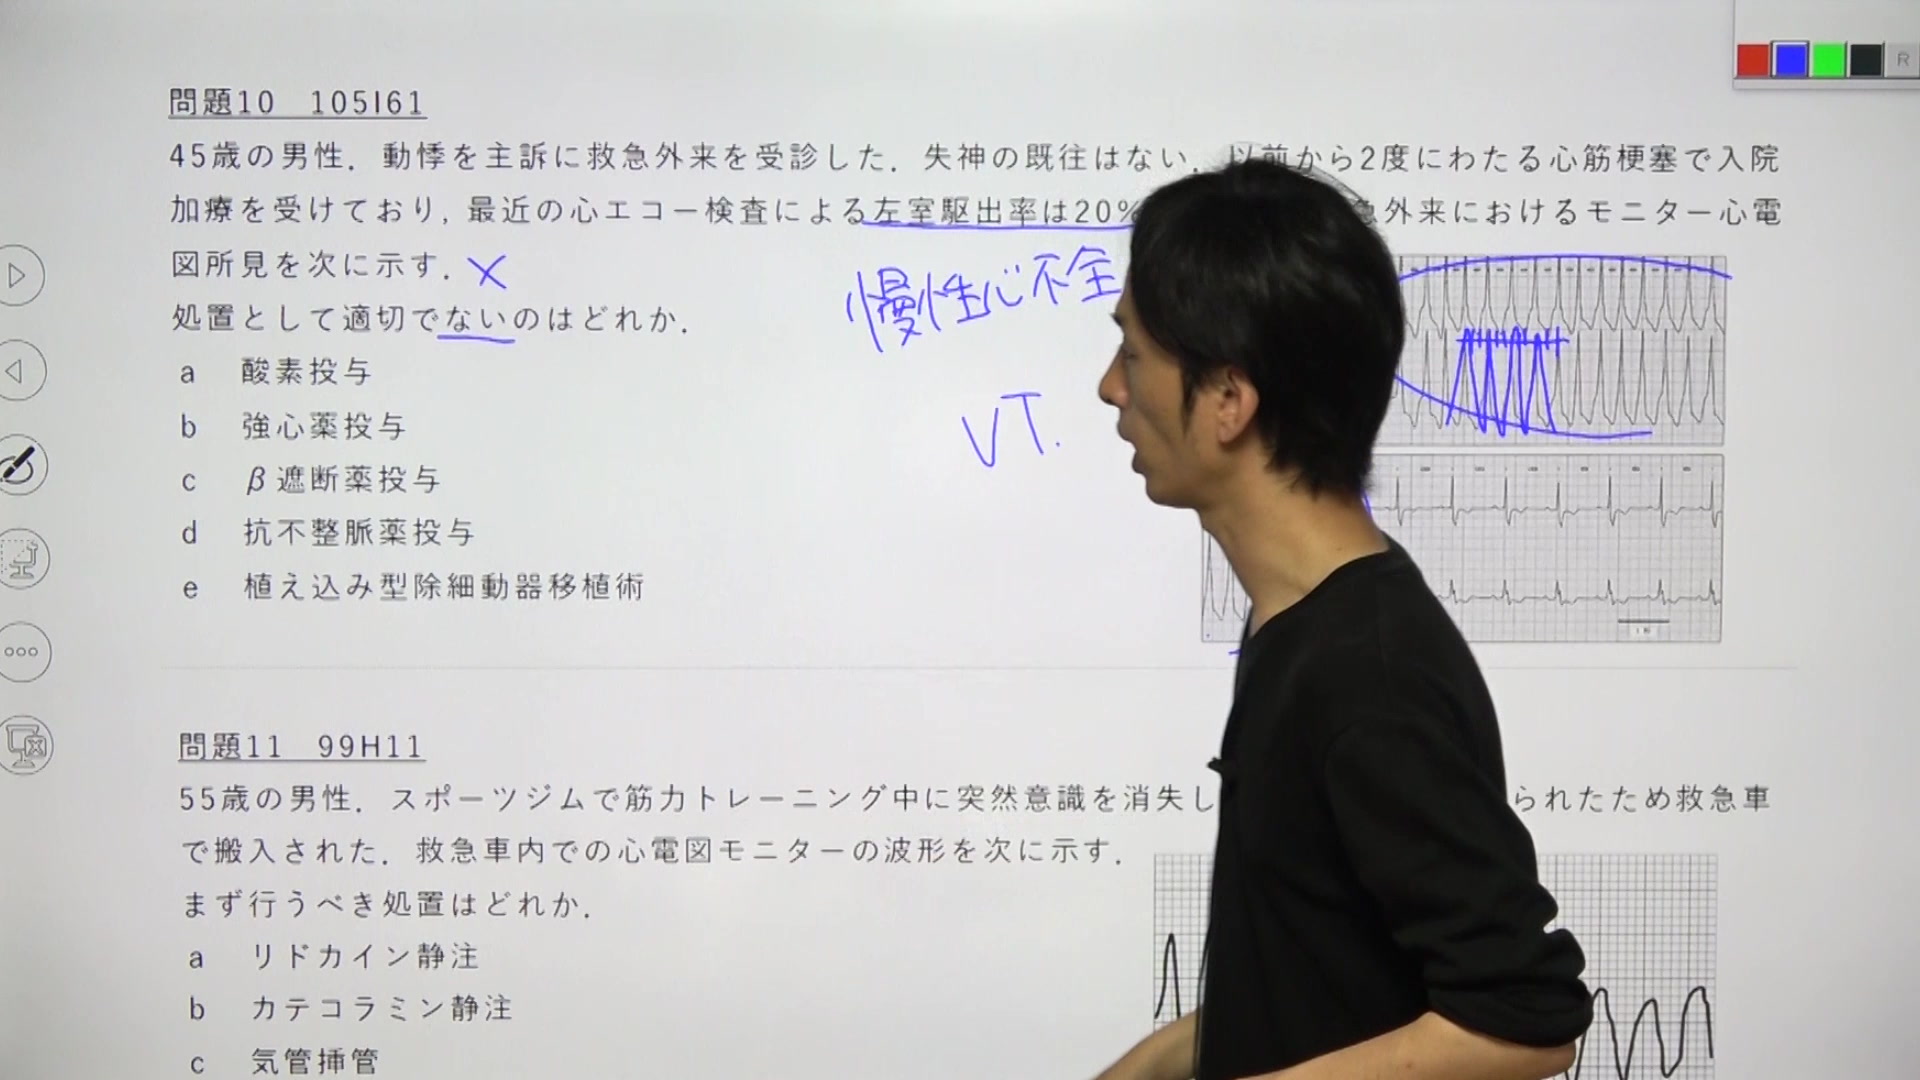 R
問題10　105I61
45歳の男性．動悸を主訴に救急外来を受診した．失神の既往はない．以前から2度にわたる心筋梗塞で入院
加療を受けており，最近の心エコー検査による左室駆出率は20% 急外来におけるモニター心電
図所見を次に示す． ×
慢性心不全
処置として適切でないのはどれか．
a　酸素投与
b　強心薬投与
VT.
c　β遮断薬投与
d　抗不整脈薬投与
e　植え込み型除細動器移植術
問題11　99H11
55歳の男性．スポーツジムで筋力トレーニング中に突然意識を消失し られたため救急車
で搬入された．救急車内での心電図モニターの波形を次に示す．
まず行うべき処置はどれか．
a　リドカイン静注
b　カテコラミン静注
c　気管挿管